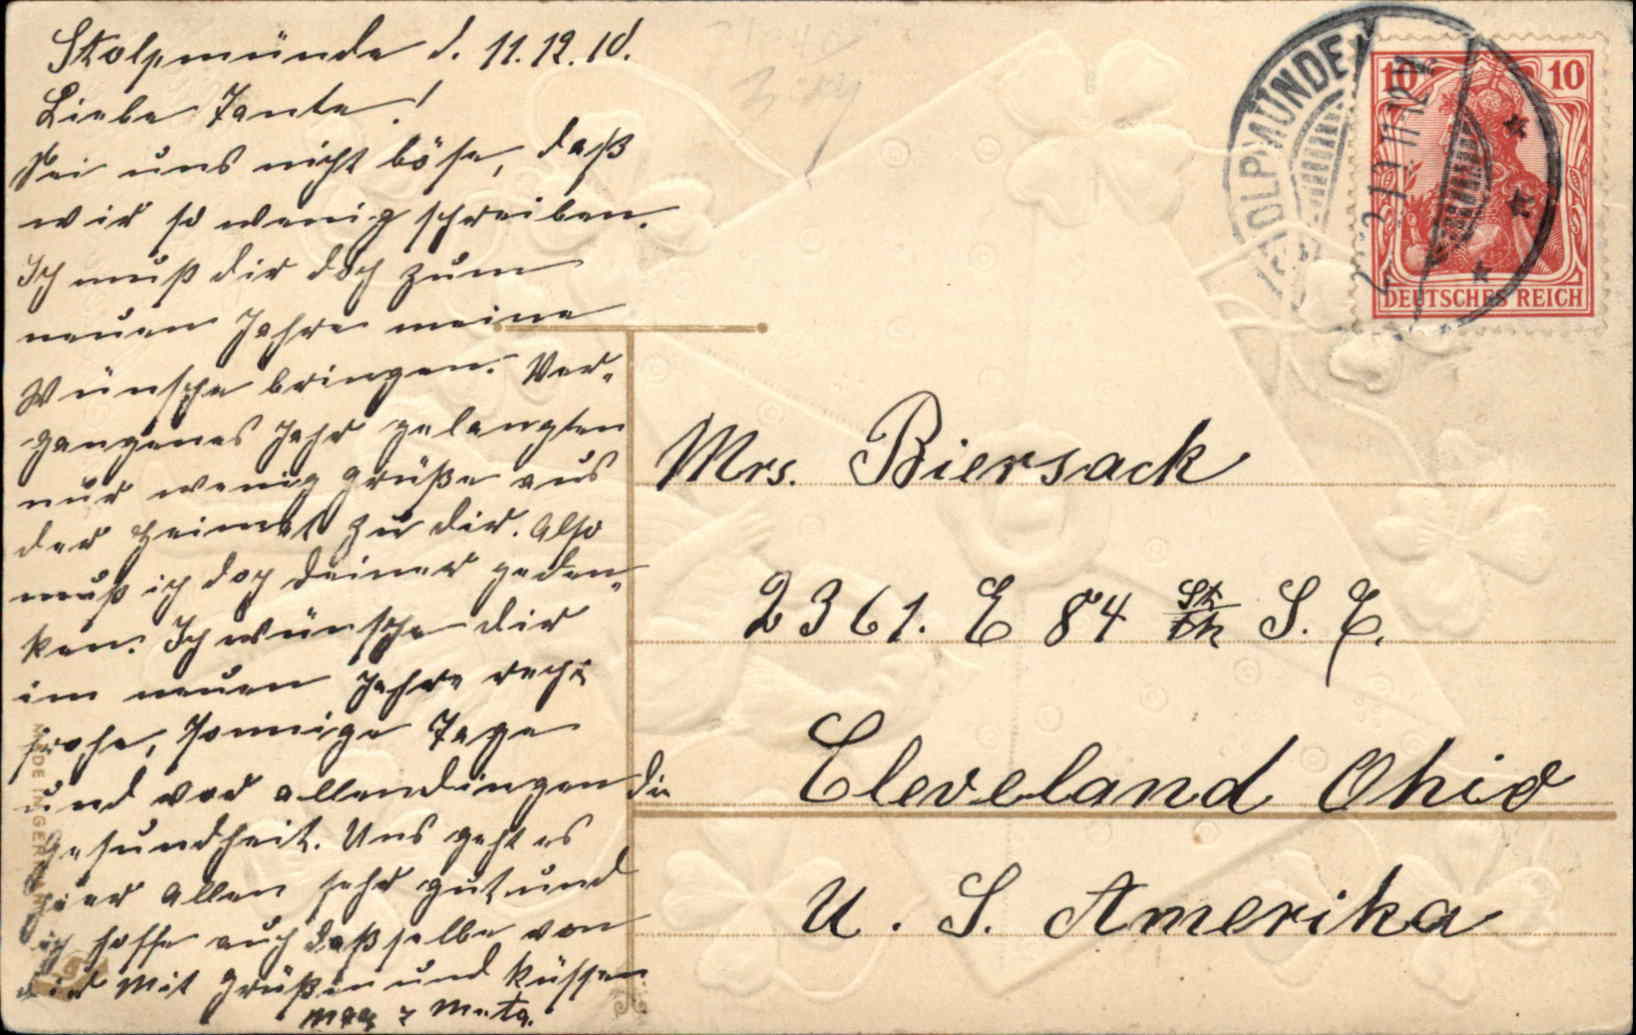 Stolpmünde d. 11.12.10.
Liebe Tante!
Sei uns nicht böse, daß
wir so wenig schreiben.
Ich muß dir doch zum
neuen Jahre meine
Wünsche bringen. Ver-
gangenes Jahr gelangten
nur wenig Grüße aus
der Heimat zu dir. Also
muß ich doch deiner geden-
ken. Ich wünsche dir
im neuen Jahre recht
frohe, sonnige Tage
und vor allendingen die
Gesundheit. Uns geht es
hier Allen sehr gut und
ich hoffe auch daßselbe von
dir Mit Grüßen und Küssen
MADE IN GERMANY
STOLPMÜNDE
10 10
DEUTSCHES REICH
Mrs. Biersack
2361. E 84 St S. E.
Cleveland Ohio
U. S. Amerika